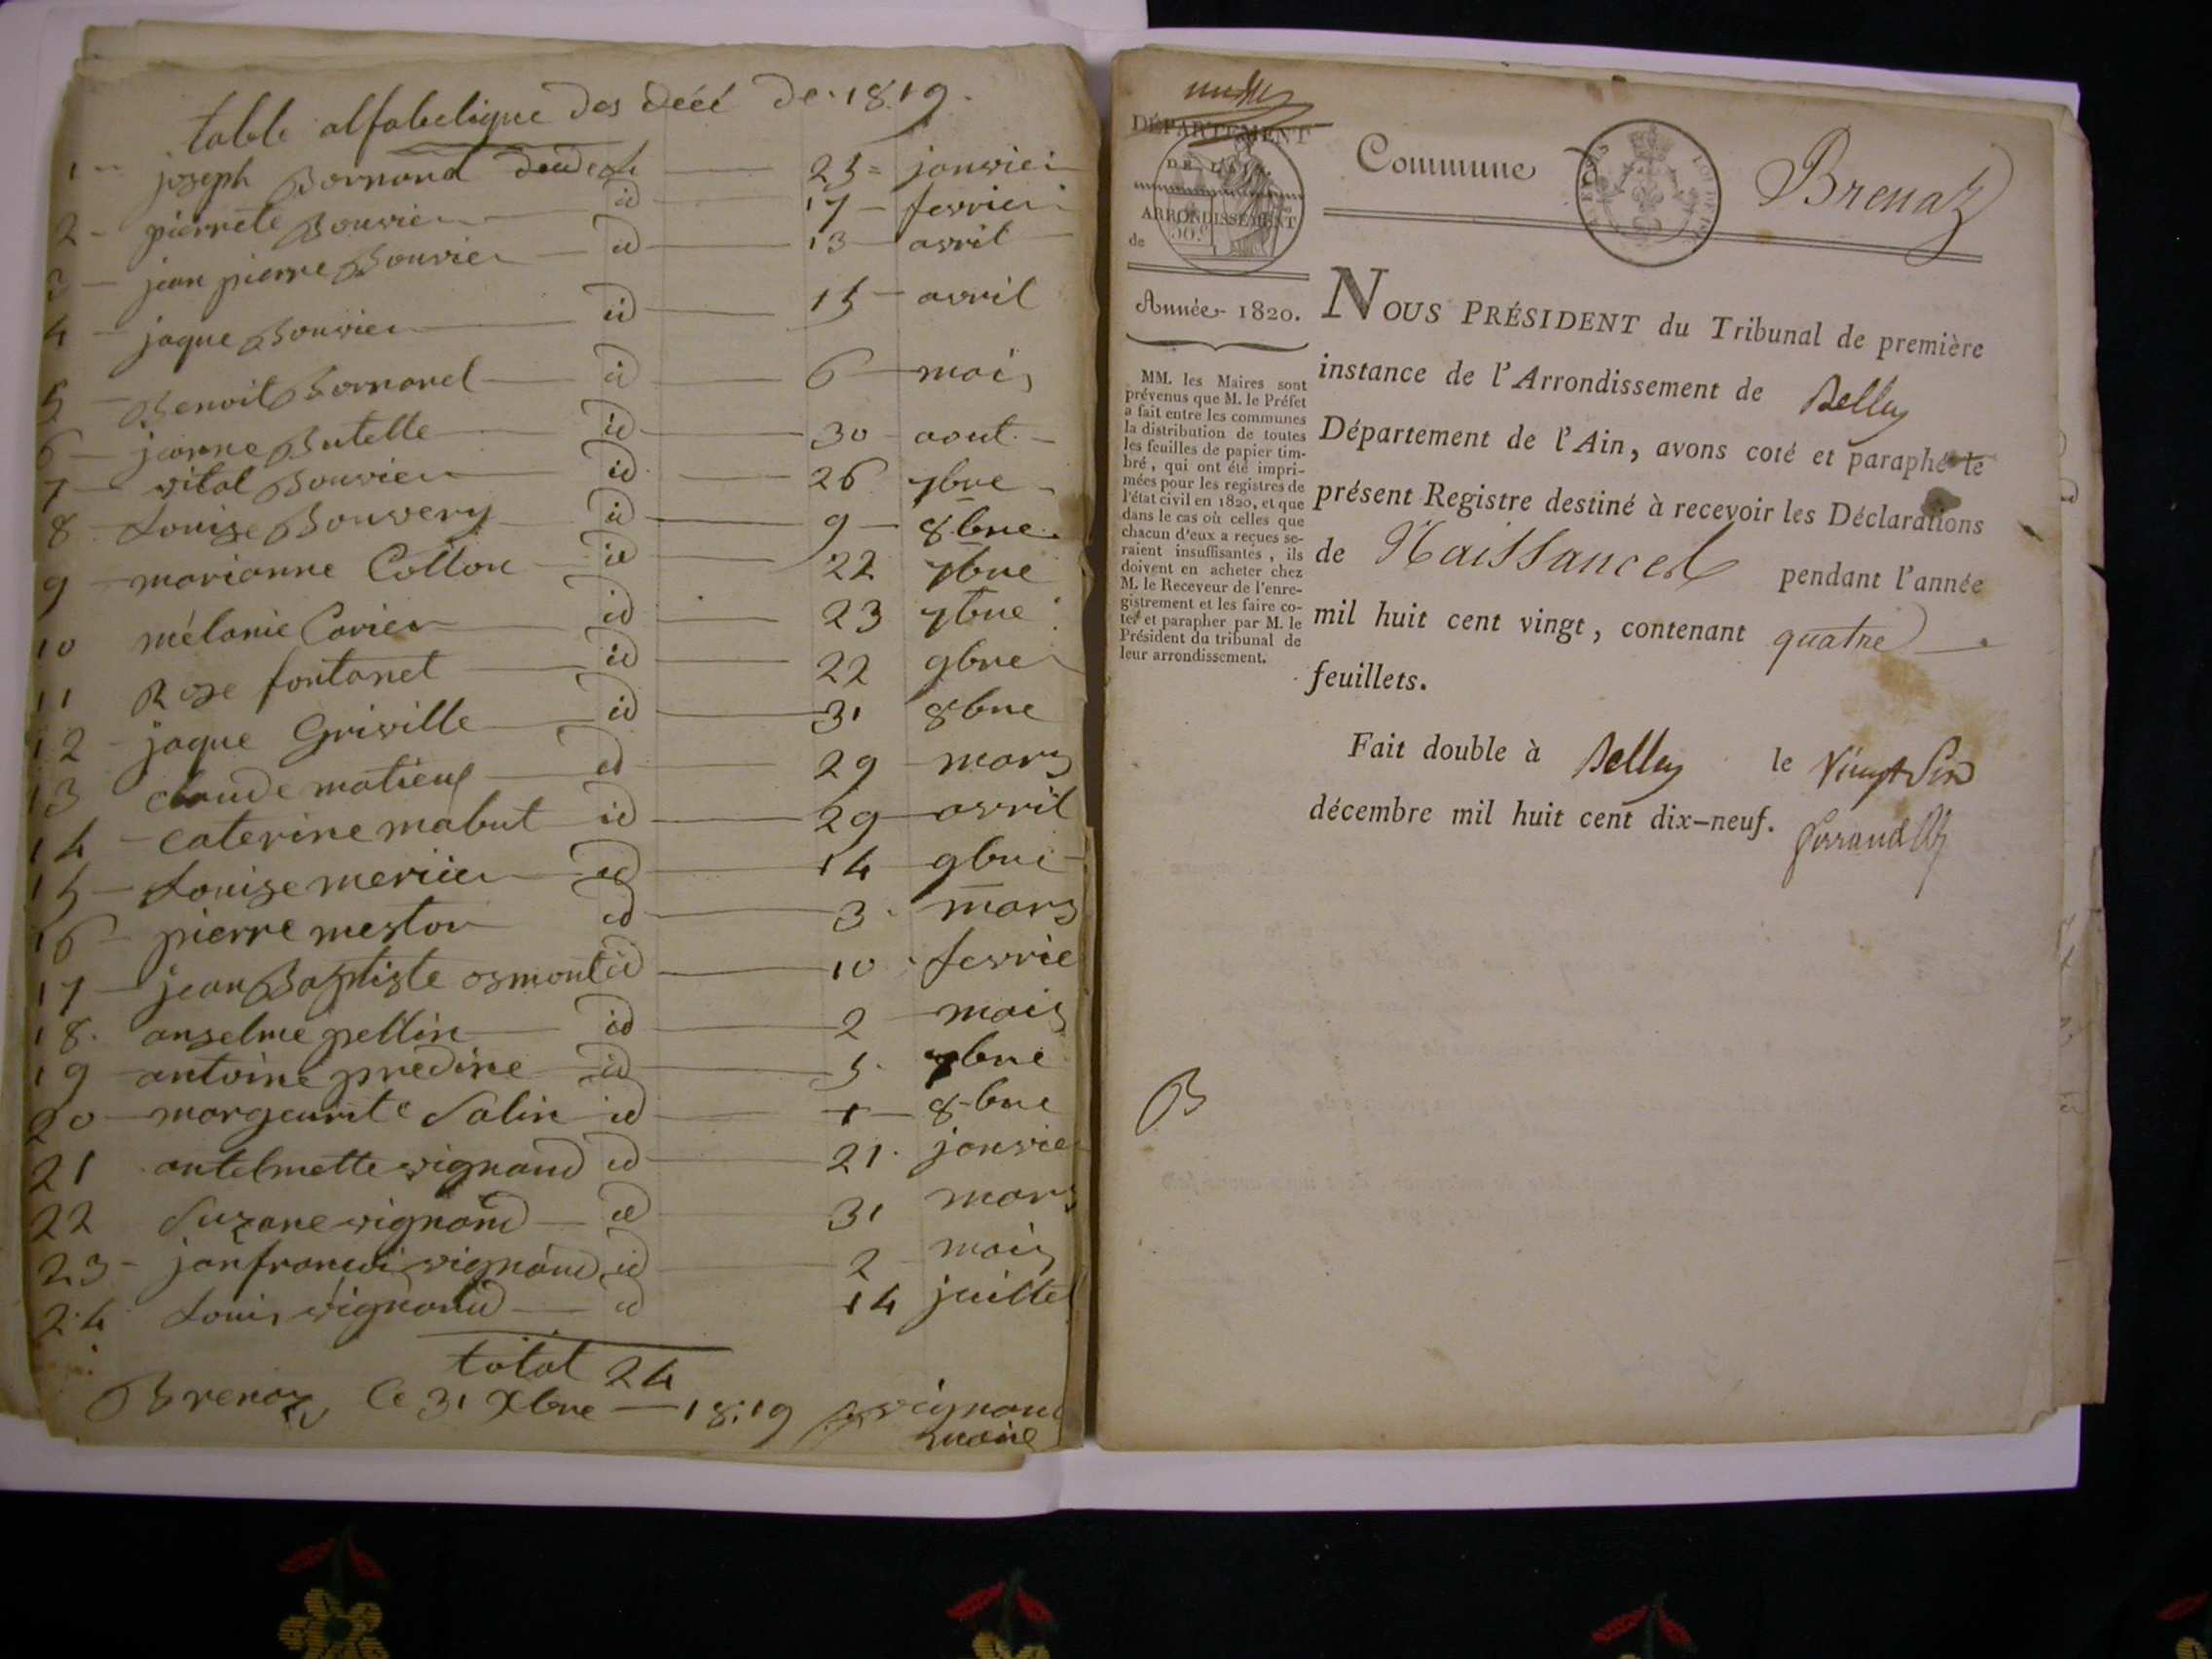 table alfabetique des déeé de 1819.
1 joseph Bornand décédé 25 janvier
2 - pierrete Bouvier id 17 - fevrier
3 - jean pierre Bouvier id 13 avril
4 - jaque Bouvier id 15 - avril
5 - Benoit Bornand id 6 mais
6 - jeanne Butelle id 30 aout
7 - vital Bouvier id 26 7bre
8 - Louise Bouvery id 9 - 8bre
9 - marianne Collon id 22 7bre
10 mélanie Carier id 23 7bre
11 Rose fontanet id 22 9bre
12 - jaque Griville id 31 8bre
13 claude matieu id 29 mars
14 - caterine mabut id 29 avril
15 - Louise merier id 14 9bre
16 - pierre mestor id 3 mars
17 - jean Baptiste osmont id 10 fevrie
18. anselme pellin id 2 mais
19 - antoine predine id 5 7bre
20 - margeurite Salin id 1 - 8bre
21 antelmette vignand id 21 janvier
22 Suzane vignand id 31 mars
23 - janfrancoi vignand id 2 mais
24 Louis vignand id 14 juillet
total 24
Brenaz le 31 Xbre - 1819 vignand
maire
DÉPARTEMENT
DE L'AIN.
ARRONDISSEMENT
de
Commune
Brenaz
Année 1820.
MM. les Maires sont
prévenus que M. le Préfet
a fait entre les communes
la distribution de toutes
les feuilles de papier tim-
bré, qui ont été impri-
mées pour les registres de
l'état civil en 1820, et que
dans le cas où celles que
chacun d'eux a reçues se-
raient insuffisantes, ils
doivent en acheter chez
M. le Receveur de l'enre-
gistrement et les faire co-
ter et parapher par M. le
Président du tribunal de
leur arrondissement.
NOUS PRÉSIDENT du Tribunal de première
instance de l'Arrondissement de Belley
Département de l'Ain, avons coté et paraphé le
présent Registre destiné à recevoir les Déclarations
de Naissances pendant l'année
mil huit cent vingt, contenant quatre
feuillets.
Fait double à Belley le vingt Six
décembre mil huit cent dix-neuf.
B